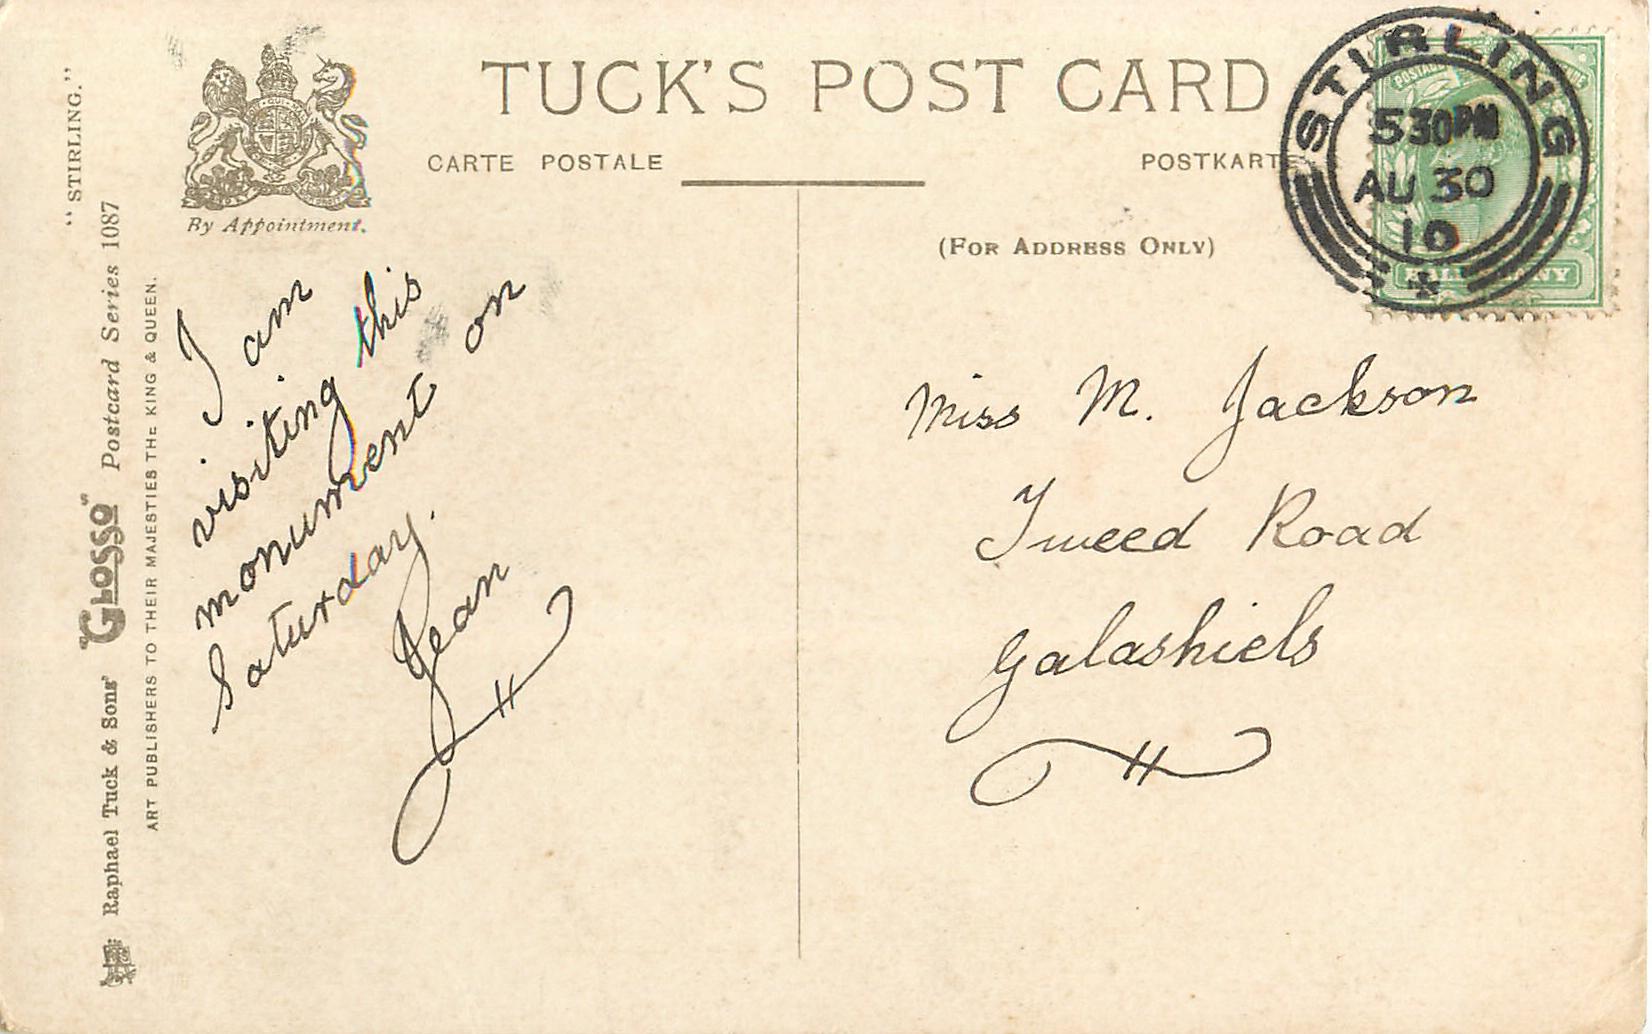 TUCK'S POST CARD
CARTE POSTALE
POSTKARTE
(FOR ADDRESS ONLY)
By Appointment.
"STIRLING."
Raphael Tuck & Sons' "GLOSSO" Postcard Series 1087
ART PUBLISHERS TO THEIR MAJESTIES THE KING & QUEEN.
STIRLING
530PM
AU 30
10
I am
visiting this
monument on
Saturday.
Jean
Miss M. Jackson
Tweed Road
Galashiels